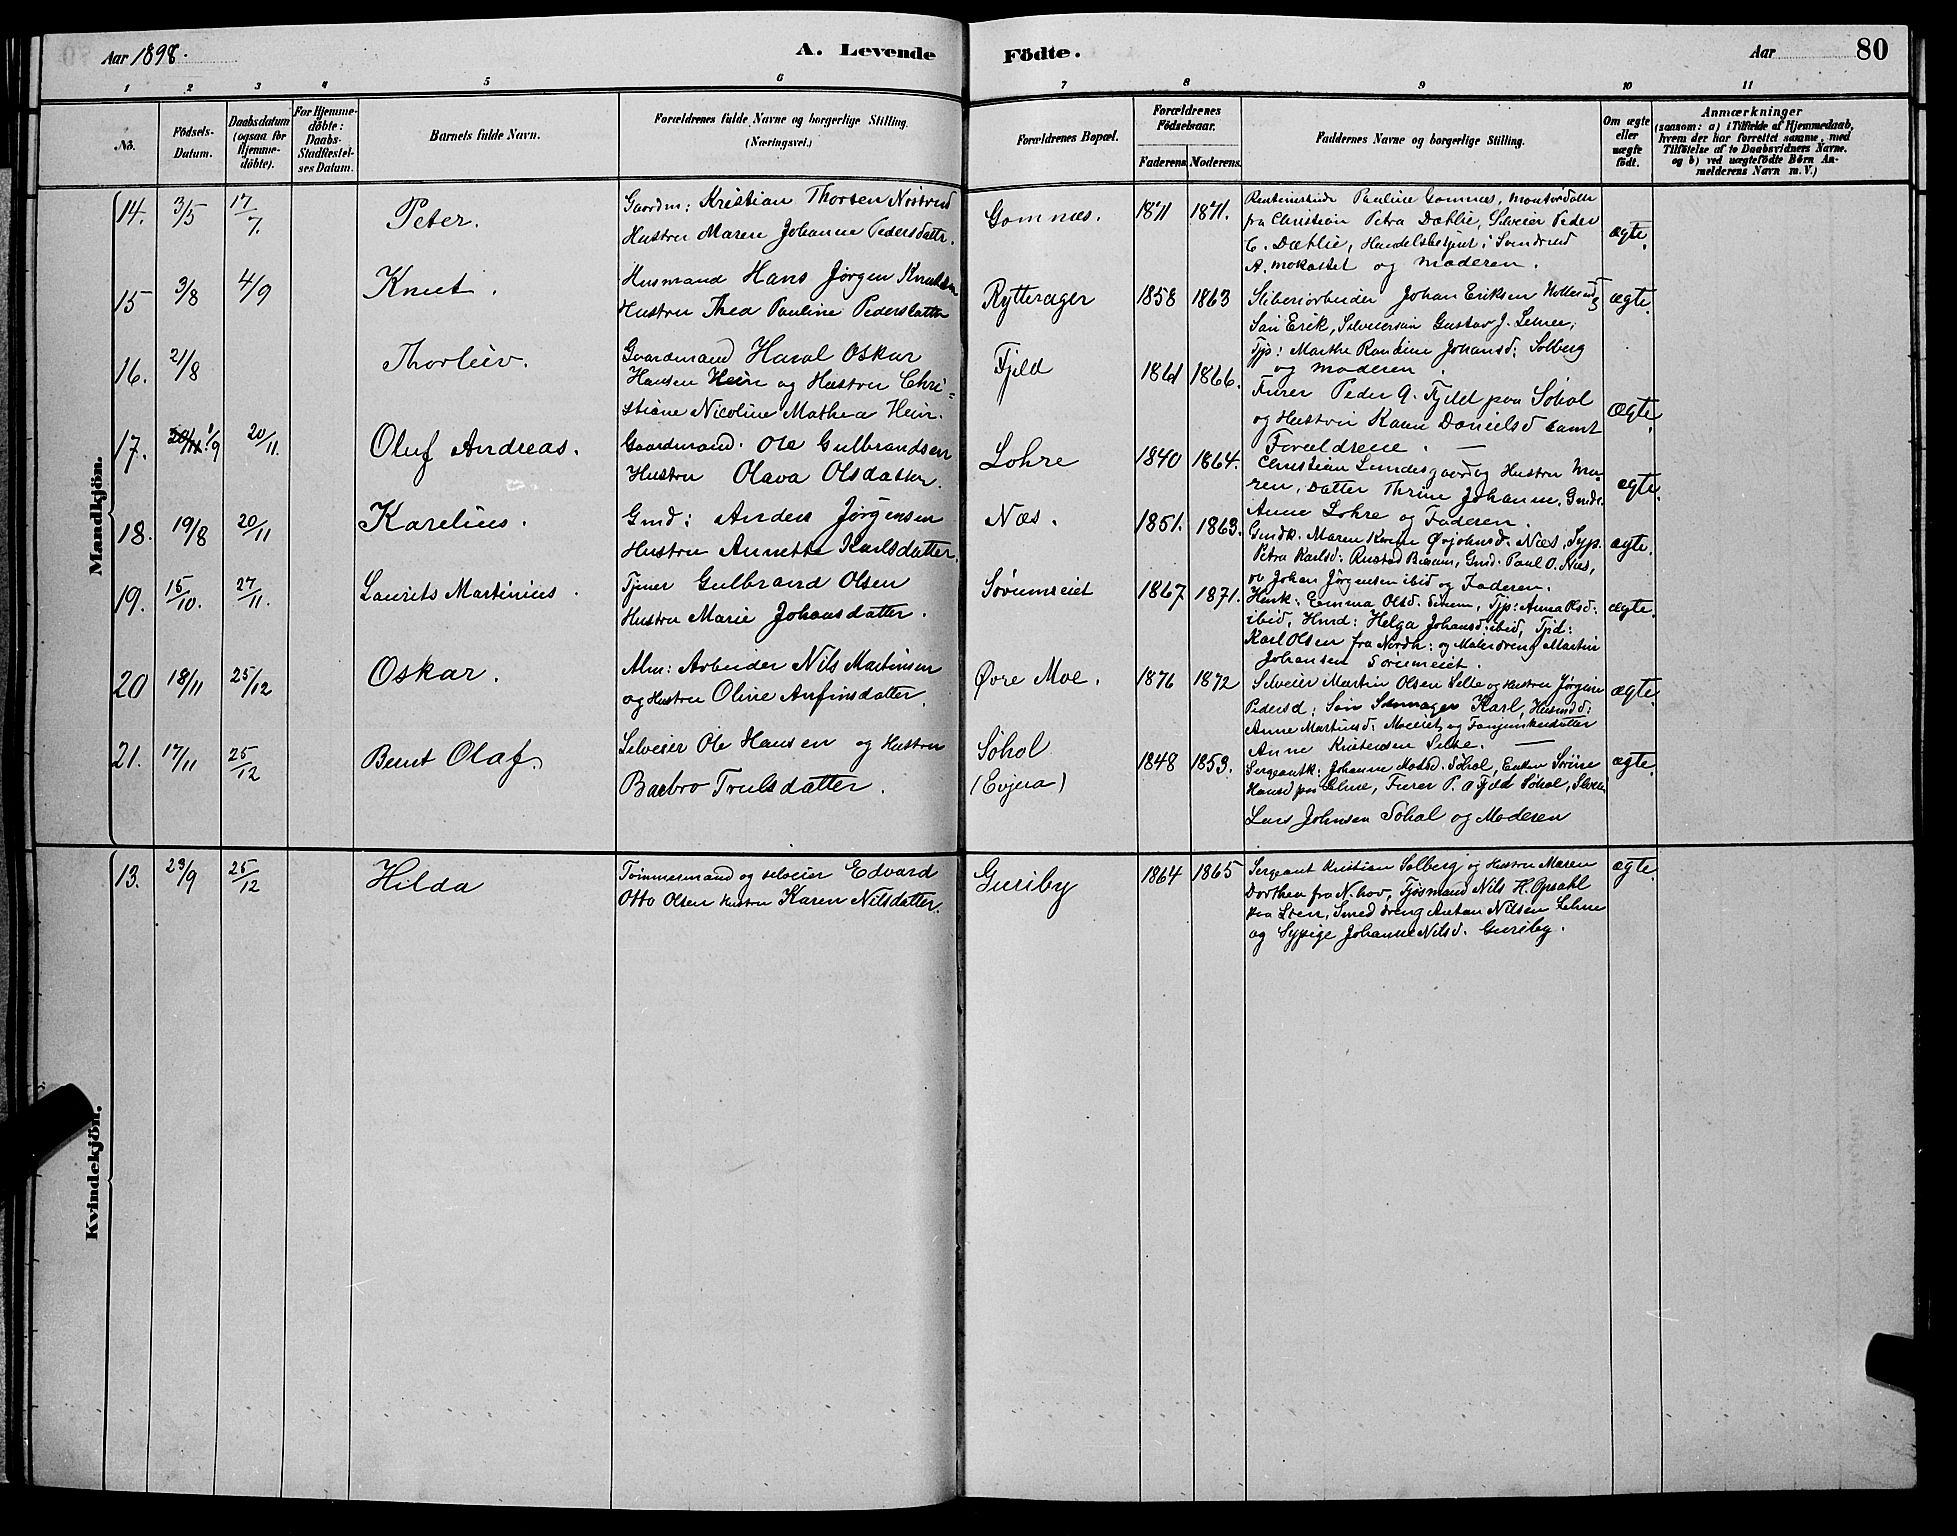 Aar 1898.
A. Levende Födte.
Aar
80
1 2 3 4 5 6 7 8 9 10 11
No.
Födsels-Datum.
Daabsdatum (ogsaa for Hjemme-döbte).
For Hjemme-döbte: Daabs-Stadfæstel-ses Datum.
Barnets fulde Navn.
Forældrenes fulde Navne og borgerlige Stilling.
(Næringsvei.)
Forældrenes Bopæl.
Forældrenes Födselsaar.
Faderens Moderens.
Faddernes Navne og borgerlige Stilling.
Om ægte eller uægte födt.
Anmærkninger
(saasom: a) i Tilfælde af Hjemmedaab,
hvem der har forrettet samme, med
Tilföielse af to Daabsvidners Navne.
og b) ved uægtefödte Börn An-
melderens Navn m. V.)
Mandkjön.
14. 3/5 17/7. Peter.
Gaardm: Kristian Thorsen
Hustru Maren Johanne Pedersdatter.
Gomnæs. 1871 1871.
Pauline Gomnæs,
fra Christian Petra Dæhlie, Selveier Peder
C. Dæhlie, Handelsbetjent i
A. og Moderen.
ægte.
15 3/8 4/9 Knut.
Husmand Hans Jørgen Knudsen
Hustru Thea Pauline Pedersdatter
Rytterager 1858 1863
Sliberiarbeider Johan Eriksen
Søn Erik, Selveiersøn Gustav J. Lehne,
Tjp: Marthe Randine Johansd: Solberg
og Moderen.
ægte.
16. 21/8 Thorleiv.
Gaardmand Haval Oskar
Hansen Hein og Hustru Chri-
stiane Nicoline Mathea Hein.
Fjeld 1861 1866.
Furer Peder A. Fjeld paa Søhol
og Hustru Karen Danielsd samt
Forældrene.
ægte.
17. 1/9 20/11. Oluf Andreas.
Gaardmand. Ole Gulbrandsen
Hustru Olava Olsdatter.
Lohre 1840 1864.
Christian Lundesgaard og Hustru Ma-
ren, Datter Thrine Johanne, Gmdk.
Anne Lohre og Faderen.
ægte.
18. 19/8 20/11 Karelius.
Gmd: Anders Jørgensen
Hustru Annette Karlsdatter.
Næs. 1851. 1863.
Gmdk. Maren Næs, Syp.
Petra Karlsd: Rustad Gmd: Paul O. Næs,
og Johan Jørgensen ibid og Faderen.
ægte.
19. 15/10. 27/11. Laurits Martinius.
Tjener Gulbrand Olsen
Hustru Marie Johansdatter.
Sørumseiet 1867 1871.
Emma Olsd. Tjp: Anna Olsd:
ibid, Helga Johansd: ibid,
Karl Olsen fra Nordh: og Malerdreng Martin
Johansen Sørumeiet.
ægte.
20 18/11 25/12 Oskar.
Alm: Arbeider Nils Martinsen
og Hustru Oline Anfinsdatter.
Øvre Moe. 1876 1872
Selveier Martin Olsen Selte og Hustru Jørgine
Pedersd: Søn Karl, Husmd:
Anne Martinsd: Moeeiet, og
Anne Kristensen Selte.
ægte.
21. 17/11 25/12 Bernt Olaf.
Selveier Ole Hansen og Hustru
Barbro Trulsdatter.
Søhol
(Evjua)
1848 1853.
Sergeantk: Johanne Søhol, Enken Sørine
Hansd paa Lehne, Furer P. A Fjeld Søhol, Selveier
Lars Johnsen Søhol og Moderen
ægte.
Kvindekjön.
13. 23/9 25/12 Hilda
Tømmermand og selveier Edvard
Otto Olsen Hustru Karen Nilsdatter.
Guriby 1864 1865
Sergeant Kristian Solberg og Hustru Maren
Dorthea fra N. hov, Nils H. Opsahl
paa Steen, Smed dreng Anton Nilsen Lehne
og Sypige Johanne Nilsd. Guriby.
ægte.